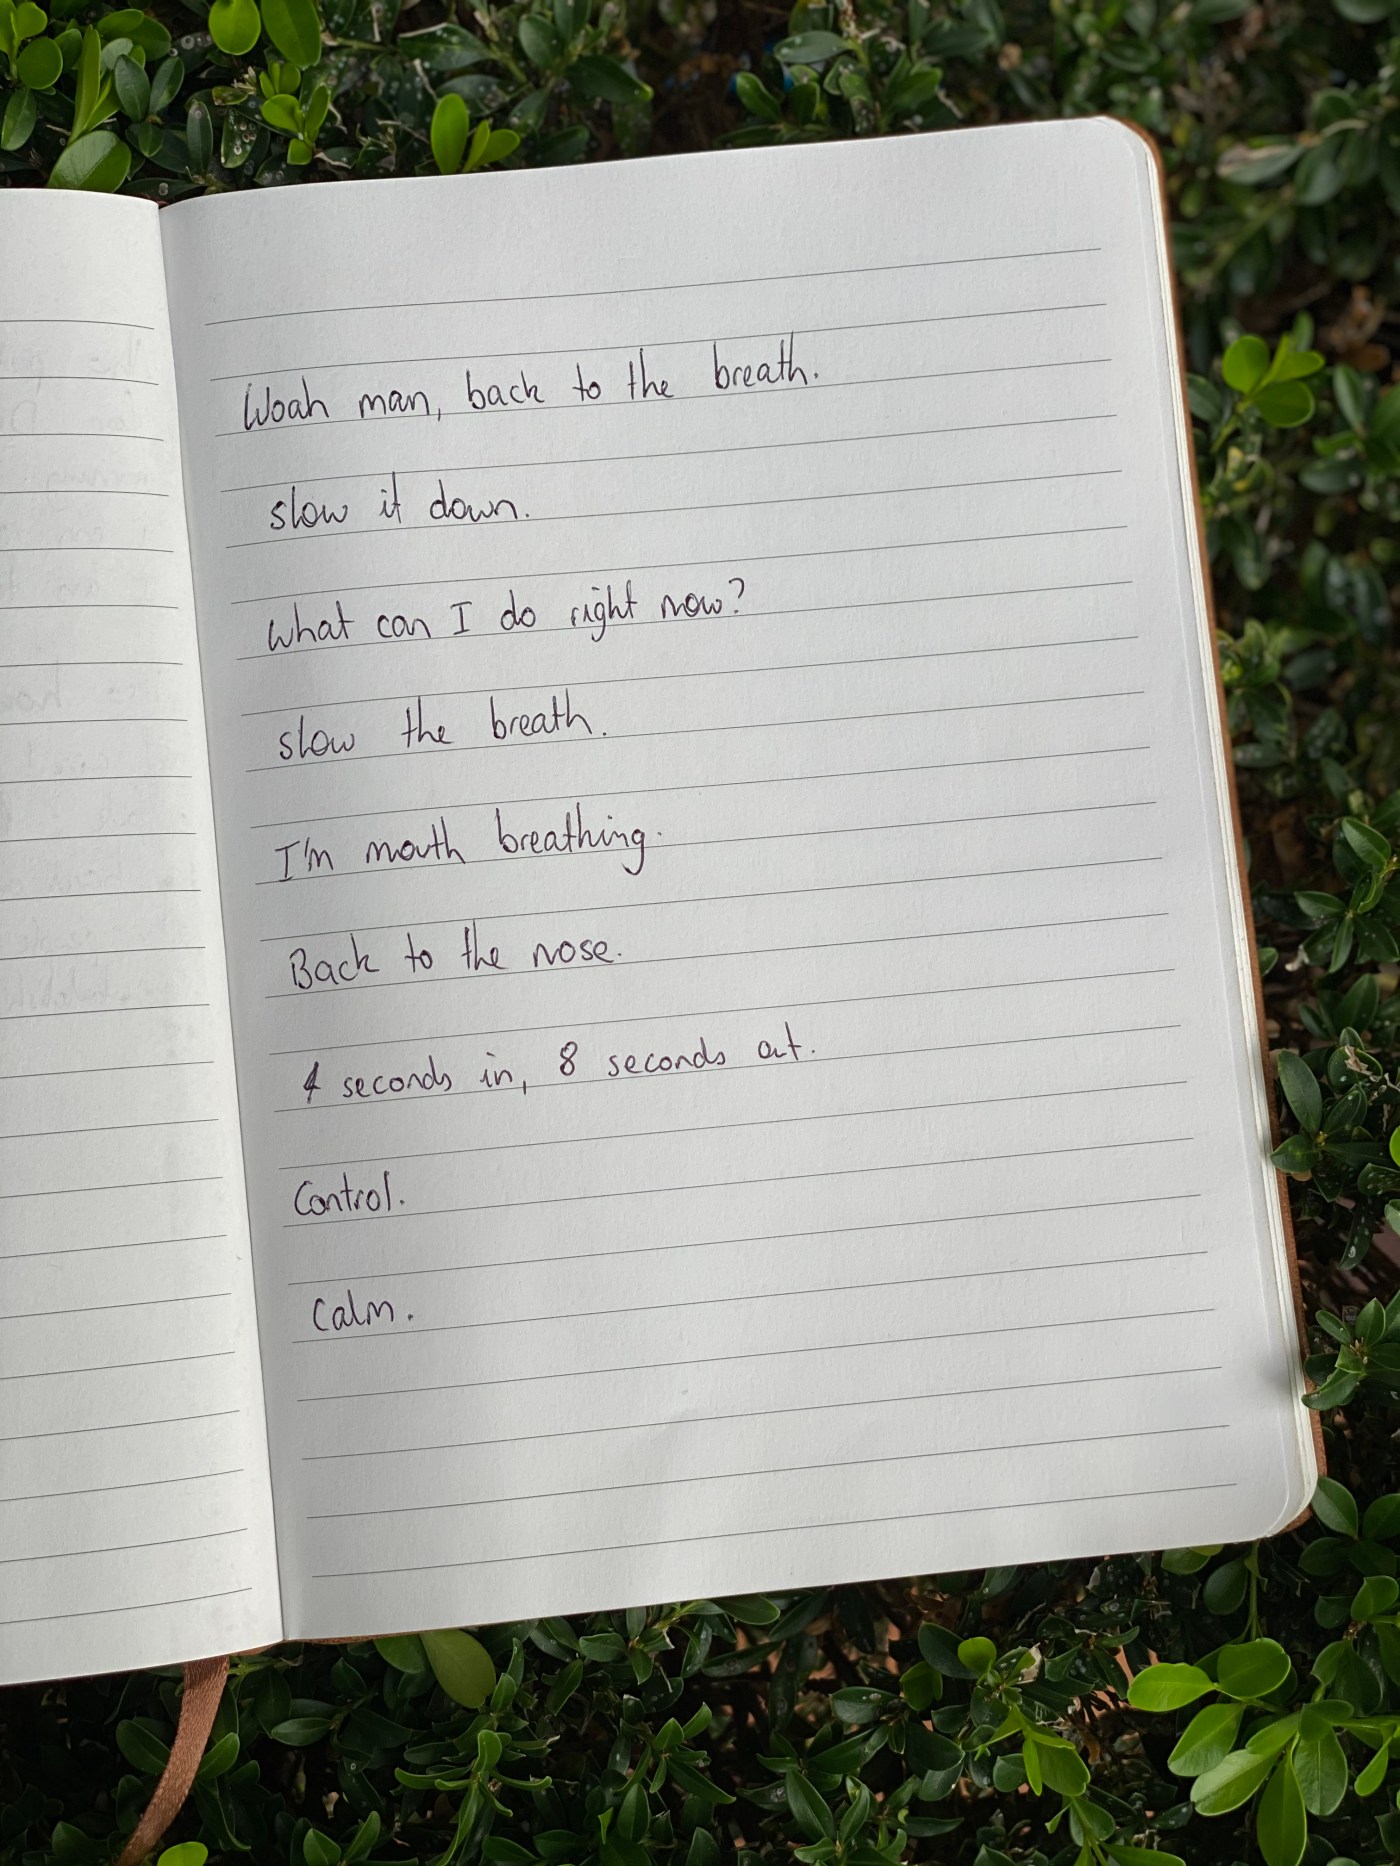 Woah man, back to the breath.
slow it down.
what can I do right now?
slow the breath.
I'm mouth breathing.
Back to the nose.
4 seconds in, 8 seconds out.
Control.
Calm.